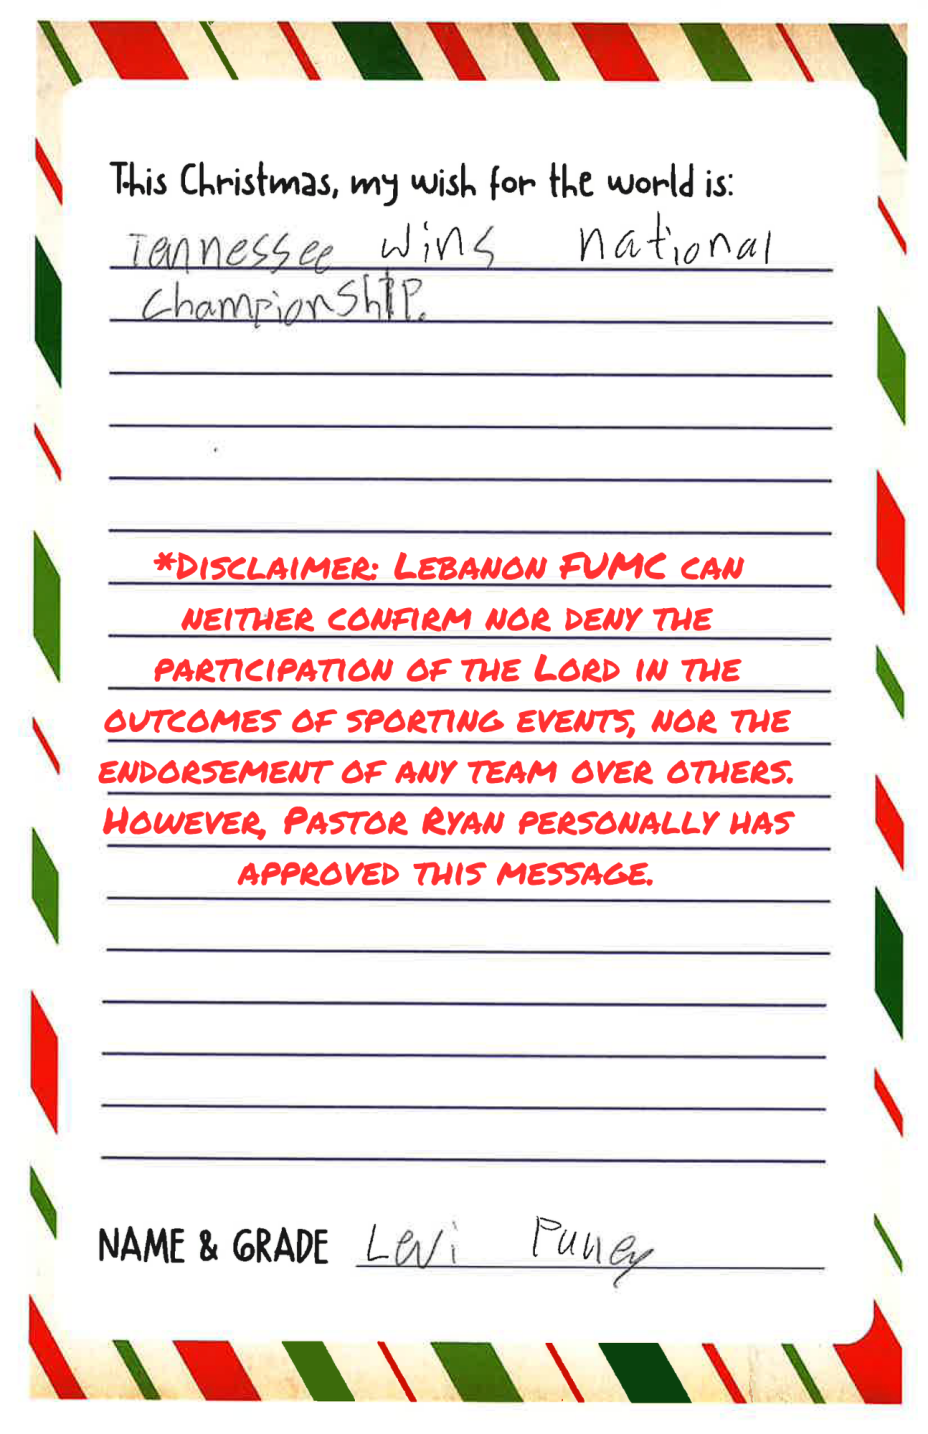 This Christmas, my wish for the world is:
Tennessee wins national
ChampionShIP.
*Disclaimer: Lebanon FUMC can
neither confirm nor deny the
participation of the Lord in the
outcomes of sporting events, nor the
endorsement of any team over others.
However, Pastor Ryan personally has
approved this message.
NAME & GRADE Levi Puney